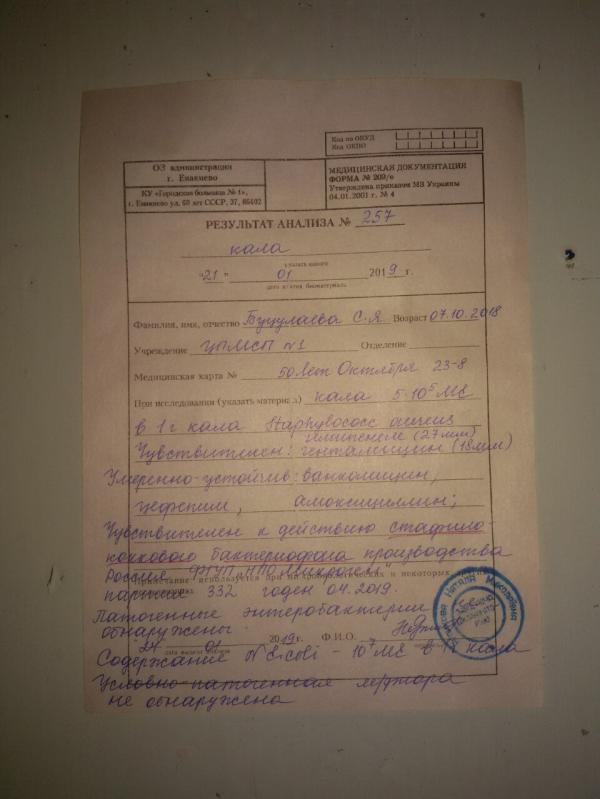 Код по ОКУД
Код ОКПО
ОЗ администрации
г. Енакиево
КУ «Городская больница № 1»,
г. Енакиево ул. 50 лет СССР, 37, 86402
МЕДИЦИНСКАЯ ДОКУМЕНТАЦИЯ
ФОРМА № 209/о
Утверждена приказом МЗ Украины
04.01.2001 г. № 4
РЕЗУЛЬТАТ АНАЛИЗА № 257
кала
указать какого
"21" 01 2019 г.
дата взятия биоматериала
Фамилия, имя, отчество Буцулаева С.Я. Возраст 07.10.2018
Учреждение ЦПМСП №1 Отделение
Медицинская карта № 50 лет Октября 23-8
При исследовании (указать материал) кала 5·10⁵ МЕ
в 1 г кала Staphylococc aureus
имипенем (27мм)
Чувствителен: гентамицин (18мм)
Умеренно-устойчив: ванкомицин,
цефепим, амоксициллин;
Чувствителен к действию стафило-
коккового бактериофага производства
Россия ФГУП „НПО „Микроген"
Примечание используется при микробиологических и некоторых
партия 332 годен 04.2019.
Патогенные энтеробактерии
обнаружены
24 01 2019 г. Ф.И.О.
Содержание N E.coli - 10⁷ МЕ в 1г кала
Условно-патогенная
не обнаружена
Наталія Миколаївна